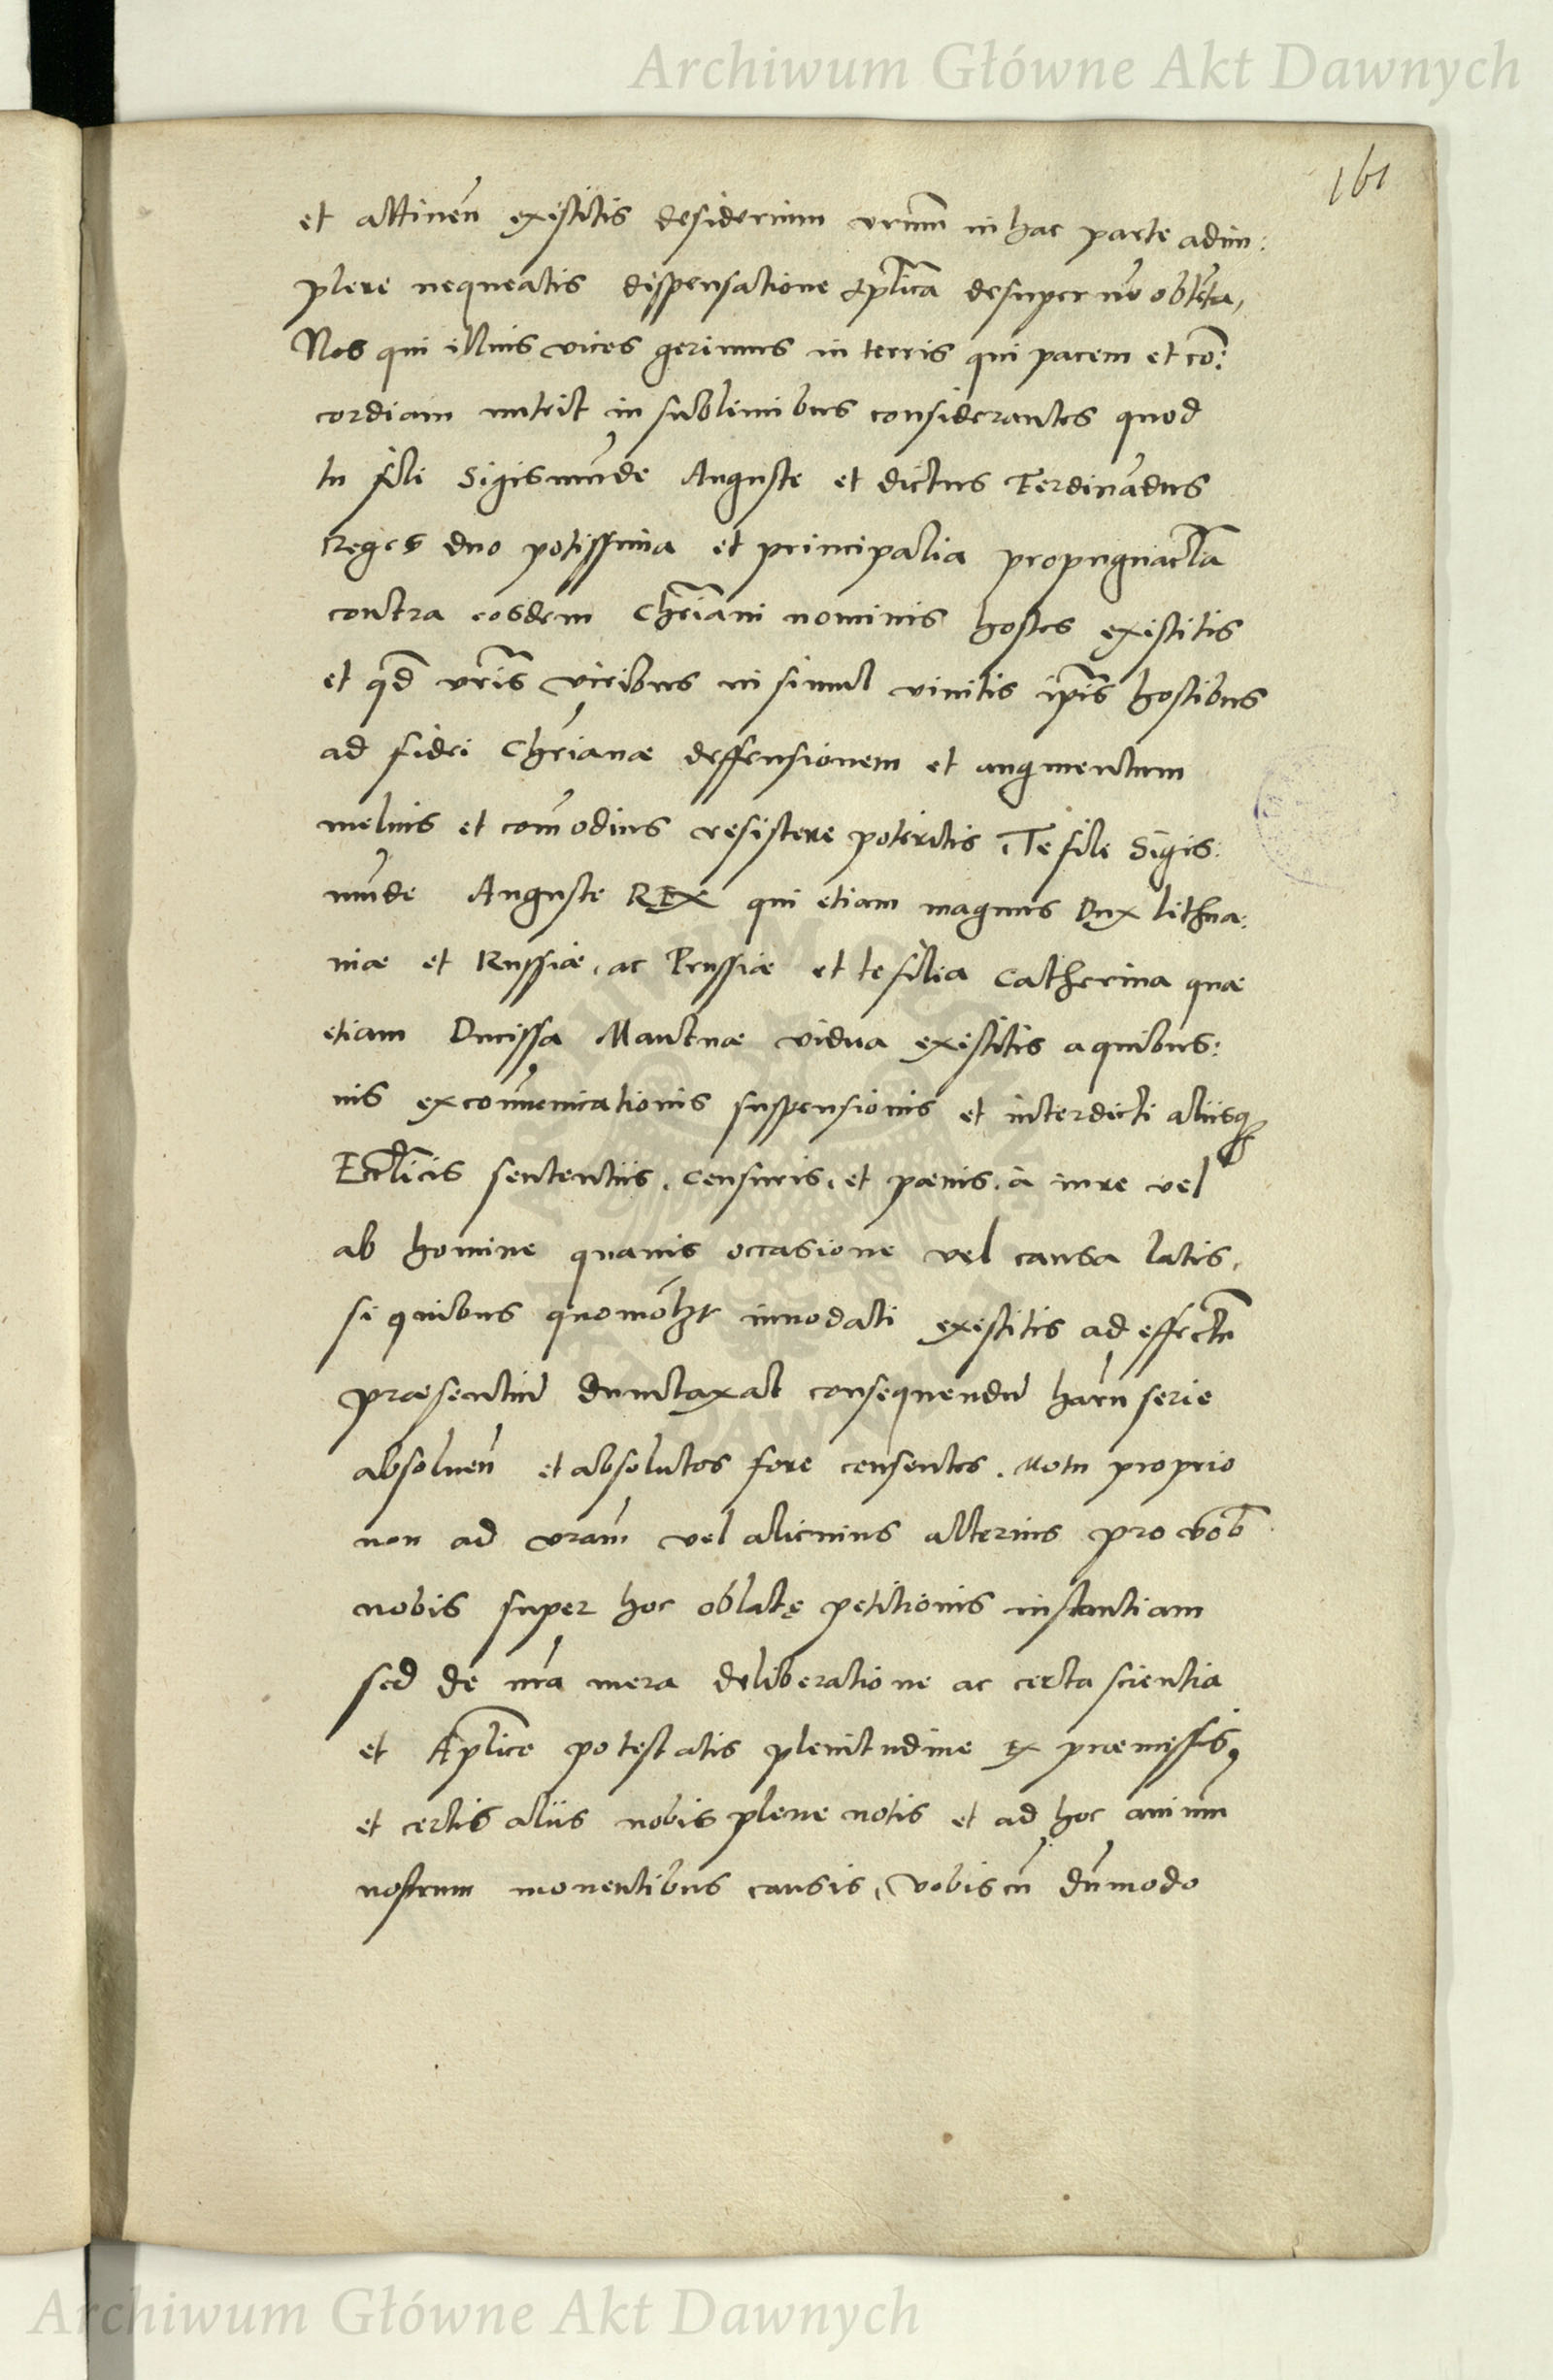 Archiwum Główne Akt Dawnych
161
et attineñ existitis desiderium vrum̃ in hac parte adim:
plere nequeatis dispensatione aplica desuper nõ obtẽta,
Nos qui illius vices gerimus in terris qui pacem et cõ:
cordiam nutrit in sublimibus considerantes quod
tu fili Sigismũde Auguste et dictus Ferdinãdus
Reges duo potissima et principalia propugnacl̃a
contra eosdem Chr̃iani nominis hostes existitis
et qd̃ vr̃is viribus in simul vnitis ip̃is hostibus
ad fidei Chr̃ianæ deffensionem et augmentum
melius et com̃odius resistere poteritis, Te fili Sigis:
mũde Auguste REX qui etiam magnus Dux Lithua:
niæ et Russiæ, ac Prussiæ et te filia Catherina quæ
etiam Ducissa Mantuæ vidua existitis a quibus:
uis excom̃unicationis suspensionis et interdicti aliisq;
Eccl̃icis sententiis, censuris, et pœnis, à iure vel
ab homine quauis occasione vel causa latis,
si quibus quomõlz innodati existitis ad effectũ
præsentiũ duntaxat consequendũ harũ serie
absolueñ et absolutos fore censentes. Motu proprio
non ad vram̃ vel alicuius alterius pro vob̃
nobis super hoc oblatę petitionis instantiam
sed de nr̃a mera deliberatione ac certa scientia
et Ap̃lice potestatis plenitudine ex præmissis,
et certis aliis nobis plene notis et ad hoc animũ
nostrum mouentibus causis, vobiscũ dũmodo
Archiwum Główne Akt Dawnych